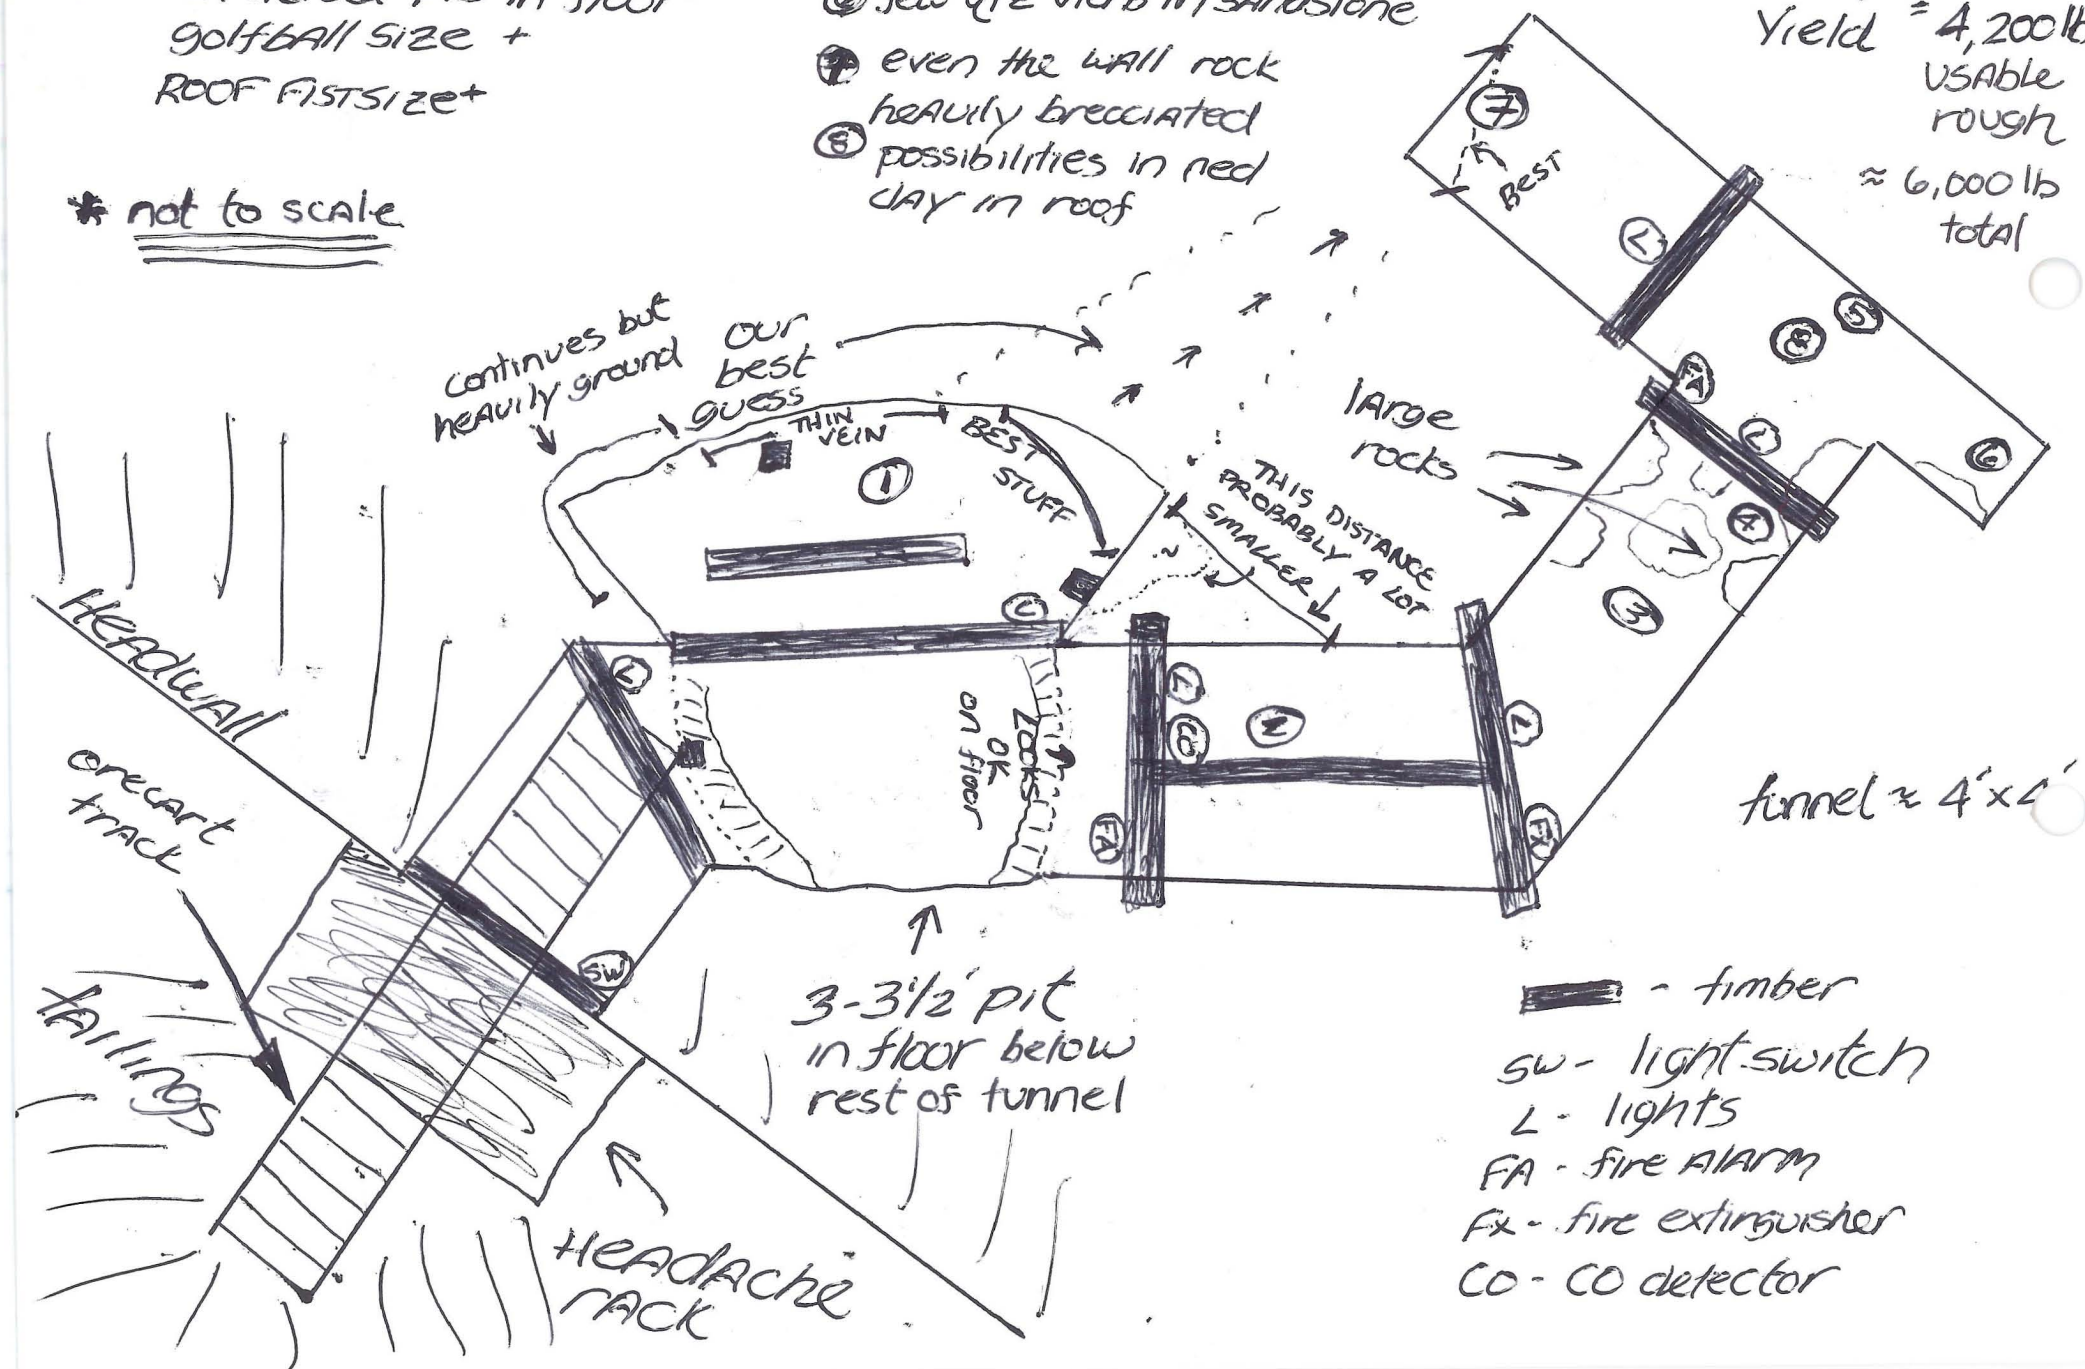 in floor
golfball size +
ROOF FISTSIZE+
* not to scale
⑥ few qtz veins in sandstone
⑦ even the wall rock
heavily brecciated
⑧ possibilities in red
clay in roof
Yield ≈ 4,200 lb
usable
rough
≈ 6,000 lb
total
7
BEST
L
5
8
6
FA
L
4
3
large
rocks
continues but
heavily ground
our
best
guess
THIN
VEIN
BEST
STUFF
1
L
THIS DISTANCE
PROBABLY A LOT
SMALLER
Headwall
orecart
track
tailings
L
SW
Looks
OK
on floor
L
CO
2
FA
L
FX
tunnel ≈ 4'x4'
3-3½' pit
in floor below
rest of tunnel
Headache
rack
- timber
SW- light switch
L - lights
FA - fire alarm
Fx - fire extinguisher
CO - CO detector